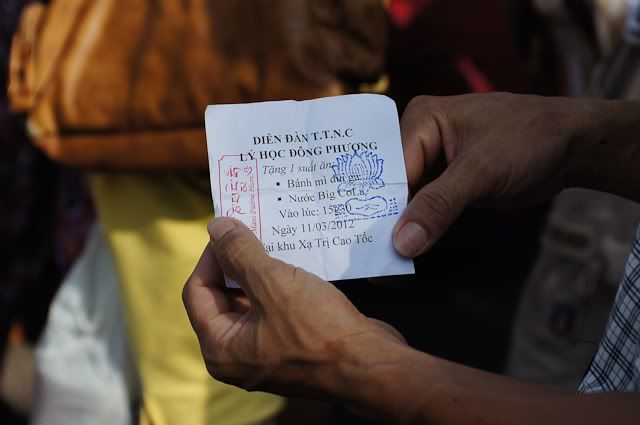 DIỄN ĐÀN T.T.N.C
LÝ HỌC ĐÔNG PHƯƠNG
Tặng 1 suất ăn:
▪ Bánh mì đùi gà
▪ Nước Big CoLa
Vào lúc: 15h30
Ngày 11/03/2012
ại khu Xạ Trị Cao Tốc